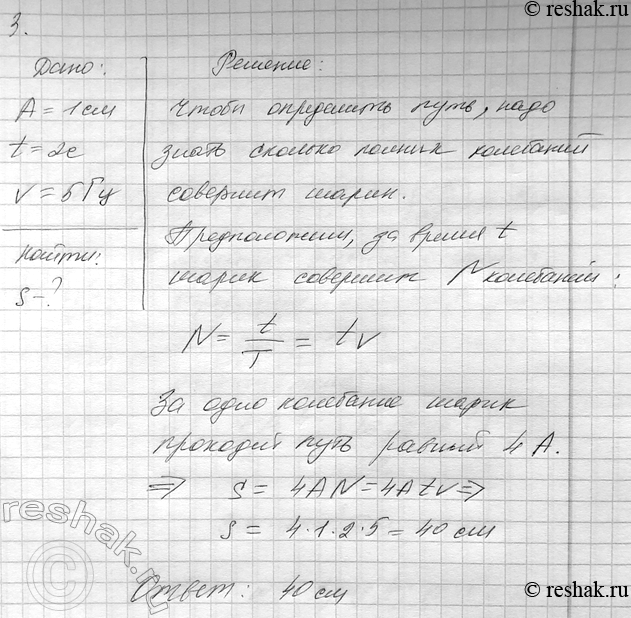 © reshak.ru
3.
Дано:
A = 1 см
t = 2с
ν = 5 Гц
Найти:
S - ?
Решение:
Чтобы определить путь, надо
знать сколько полных колебаний
совершит шарик.
Предположим, за время t
шарик совершит N колебаний:
N = t/T = tν
За одно колебание шарик
проходит путь равный 4 A.
⇒ S = 4AN = 4Atν ⇒
S = 4·1·2·5 = 40 см
Ответ: 40 см
reshak.ru
©
© reshak.ru